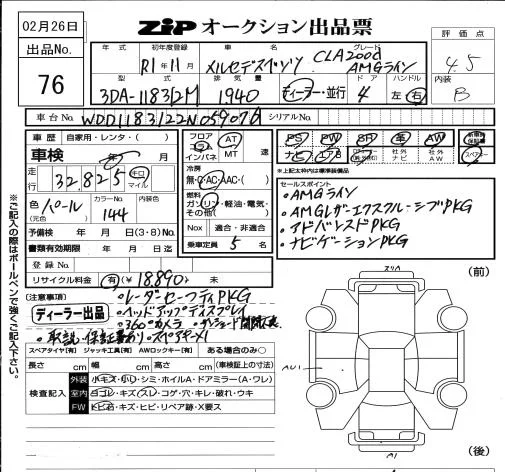 02月26日
ZIP オークション出品票
出品No.
76
年式 初年度登録 車名 グレード
R1年11月 メルセデスベンツ CLA200d
AMGライン
評価点
4.5
内装
B
型式 排気量 ドア ハンドル
3DA-118312M 1,940 ディーラー・並行 4 左・右
車台No. WDD1183122N059076 シリアルNo.
車歴 自家用・レンタ・( )
車検 年 月
走行 32,825 キロ マイル
色 パール (元色)
カラーNo. 144
内装色
予備検 年 月 日(3・8)No.
書類有効期限 年 月 日迄
登録No.
リサイクル料金 有(¥18,890) 未
フロア インパネ
AT MT 速
冷房
無・C・AC・AAC・( )
燃料
ガソリン・軽油・電気・その他( )
Nox 適合・非適合
乗車定員 5 名
PS PW SR 革 AW
ナビ エアB 社外ナビ 社外AW スペアキー
※上記太枠内は標準装備品
セールスポイント
・AMGライン
・AMGレザーエクスクルーシブPKG
・アドバンスドPKG
・ナビゲーションPKG
(注意事項)
・レーダーセーフティPKG
ディーラー出品 ・ヘッドアップディスプレイ
・360°カメラ
・取説・保証書有り・スペアキー×1
スペアタイヤ[有] ジャッキ工具[有] AWロックキー[有] ある場合のみ○
長さ cm 幅 cm 高さ cm (車検証上の寸法)
検査記入
外装 小キズ・小凹・シミ・ホイルA・ドアミラー(A・ワレ)
室内 ヨゴレ・キズ(スレ)コゲ・穴・キレ・破れ・ウキ
FW トビ石・キズ・ヒビ・リペア跡・X要ス
※ご記入の際はボールペンで強くご記入下さい。
(前)
AU1
A1
(後)